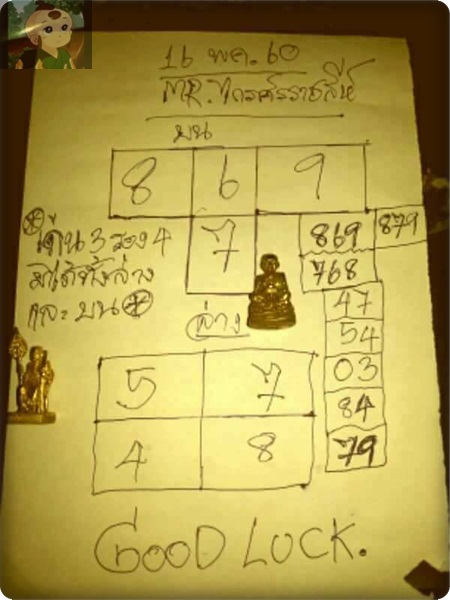 16 พค. 60
MR. ไกรศรราชสีห์
บน
8 6 9
7
869 879
768
เด่น 3 รอง 4
มีได้ทั้งล่าง
และ บน
ล่าง
47
54
03
84
79
5 7
4 8
GOOD LUCK.